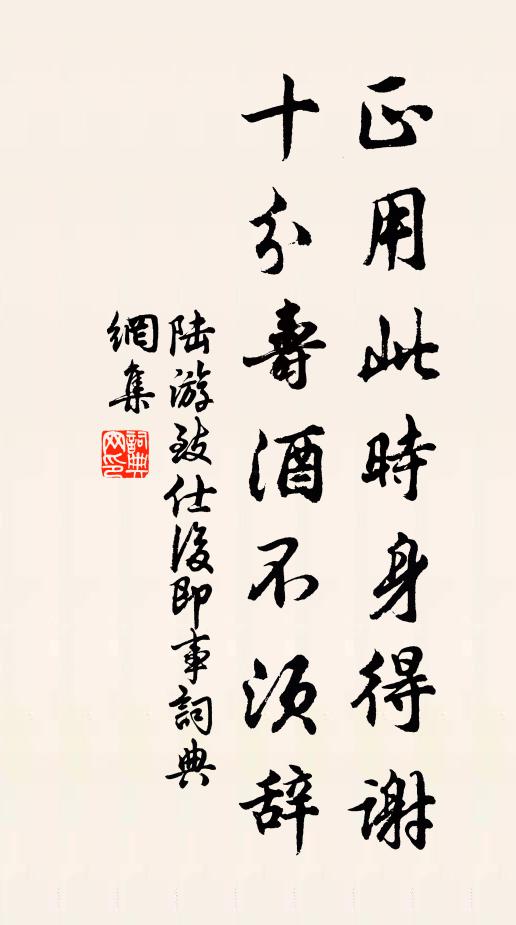 正用此時身得謝
十分壽酒不須辞
陆游致仕後即事詞典
網集
詞典
网印